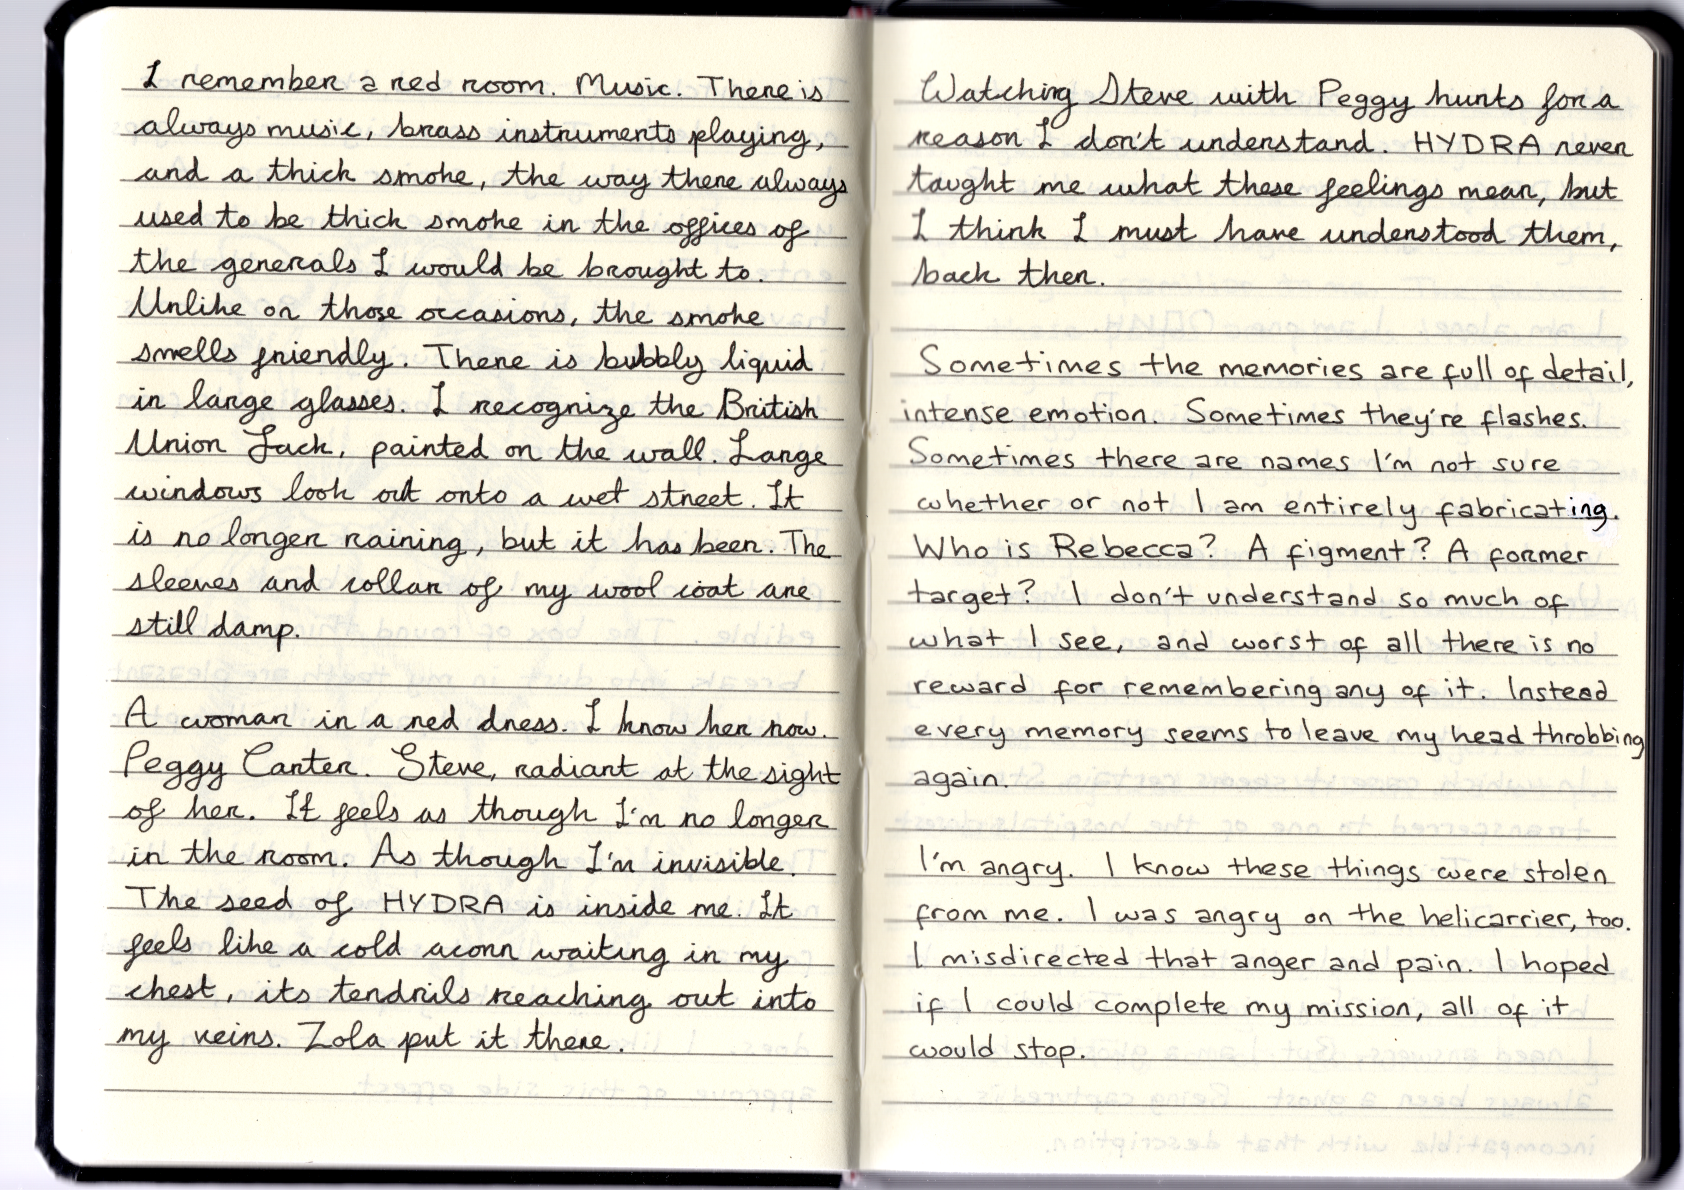 I remember a red room. Music. There is
always music, brass instruments playing,
and a thick smoke, the way there always
used to be thick smoke in the offices of
the generals I would be brought to.
Unlike on those occasions, the smoke
smells friendly. There is bubbly liquid
in large glasses. I recognize the British
Union Jack, painted on the wall. Large
windows look out onto a wet street. It
is no longer raining, but it has been. The
sleeves and collar of my wool coat are
still damp.
A woman in a red dress. I know her now.
Peggy Carter. Steve, radiant at the sight
of her. It feels as though I'm no longer
in the room. As though I'm invisible.
The seed of HYDRA is inside me. It
feels like a cold acorn waiting in my
chest, its tendrils reaching out into
my veins. Zola put it there.
Watching Steve with Peggy hurts for a
reason I don't understand. HYDRA never
taught me what these feelings mean, but
I think I must have understood them,
back then.
Sometimes the memories are full of detail,
intense emotion. Sometimes they're flashes.
Sometimes there are names I'm not sure
whether or not I am entirely fabricating.
Who is Rebecca? A figment? A former
target? I don't understand so much of
what I see, and worst of all there is no
reward for remembering any of it. Instead
every memory seems to leave my head throbbing
again.
I'm angry. I know these things were stolen
from me. I was angry on the helicarrier, too.
I misdirected that anger and pain. I hoped
if I could complete my mission, all of it
would stop.